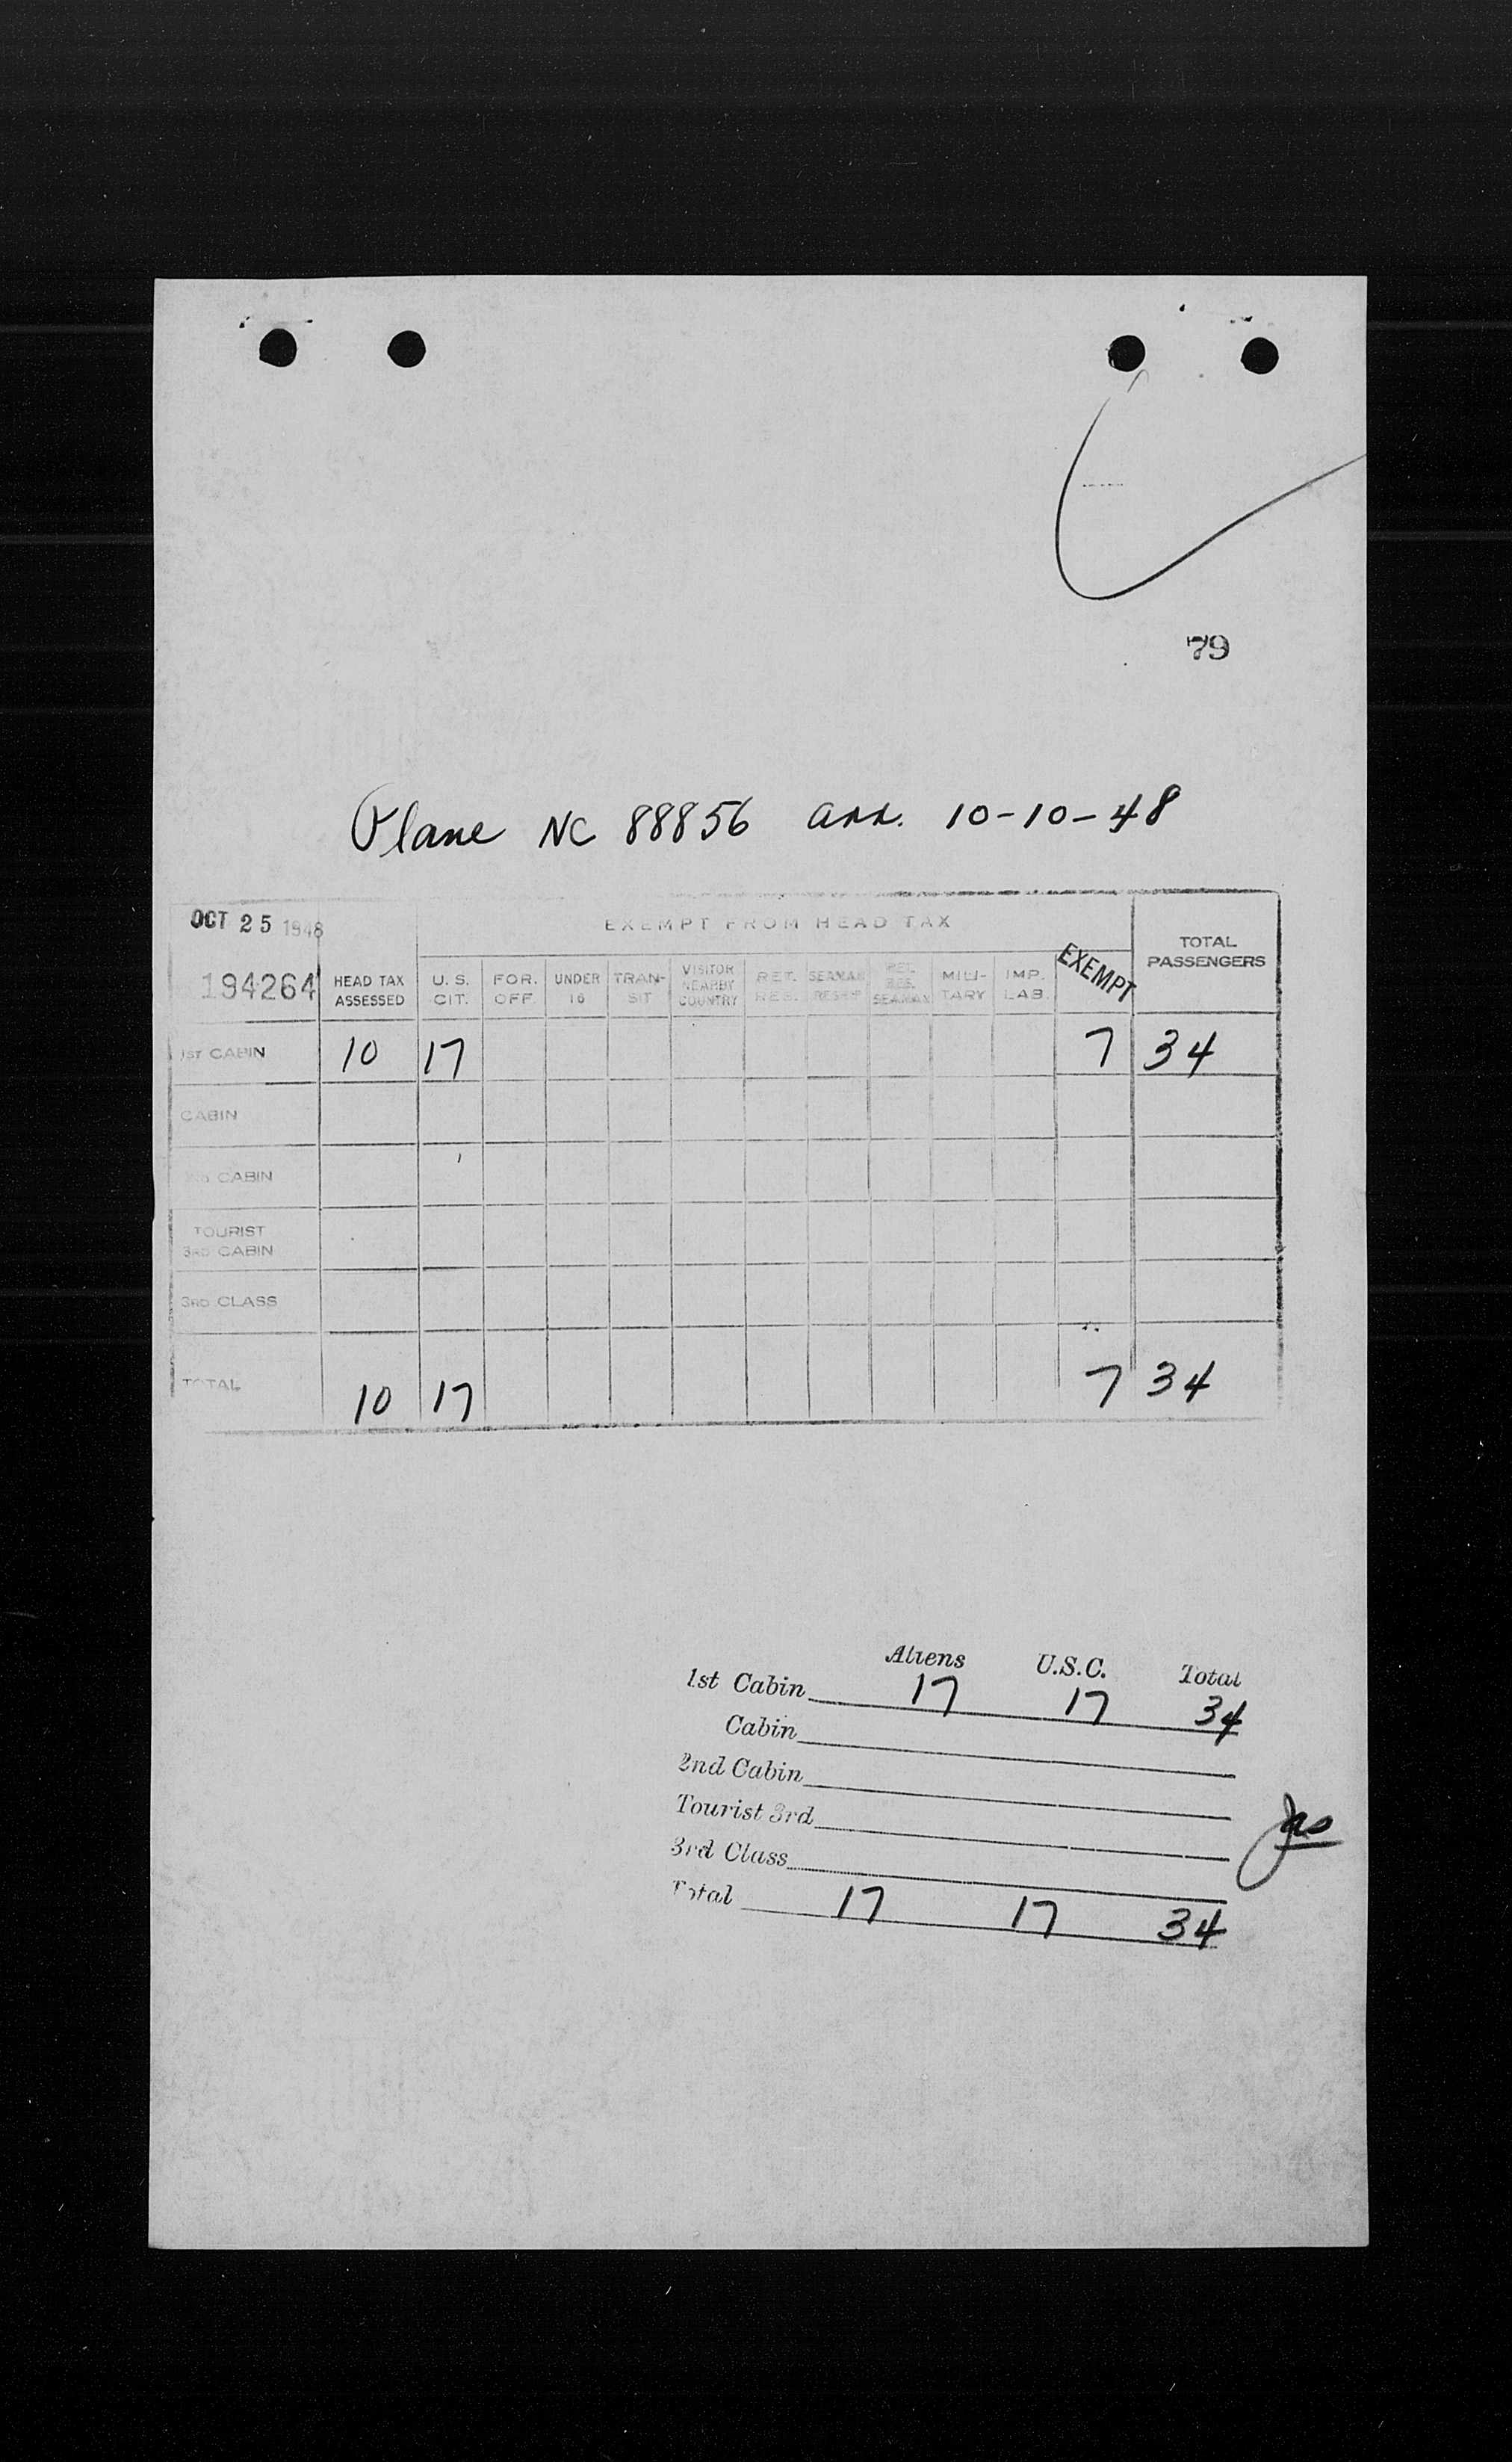 79
Plane NC 88856 arr. 10-10-48
OCT 25 1948
EXEMPT FROM HEAD TAX
194264 HEAD TAX ASSESSED U.S. CIT. FOR. OFF. UNDER 16 TRAN-SIT VISITOR NEARBY COUNTRY RET. RES. SEAMAN RES MILI-TARY IMP. LAB. EXEMPT TOTAL PASSENGERS
1ST CABIN 10 17 7 34
CABIN
CABIN
TOURIST
3RD CABIN
3RD CLASS
TOTAL 10 17 7 34
Aliens U.S.C. Total
1st Cabin 17 17 34
Cabin
2nd Cabin
Tourist 3rd
3rd Class
Total 17 17 34